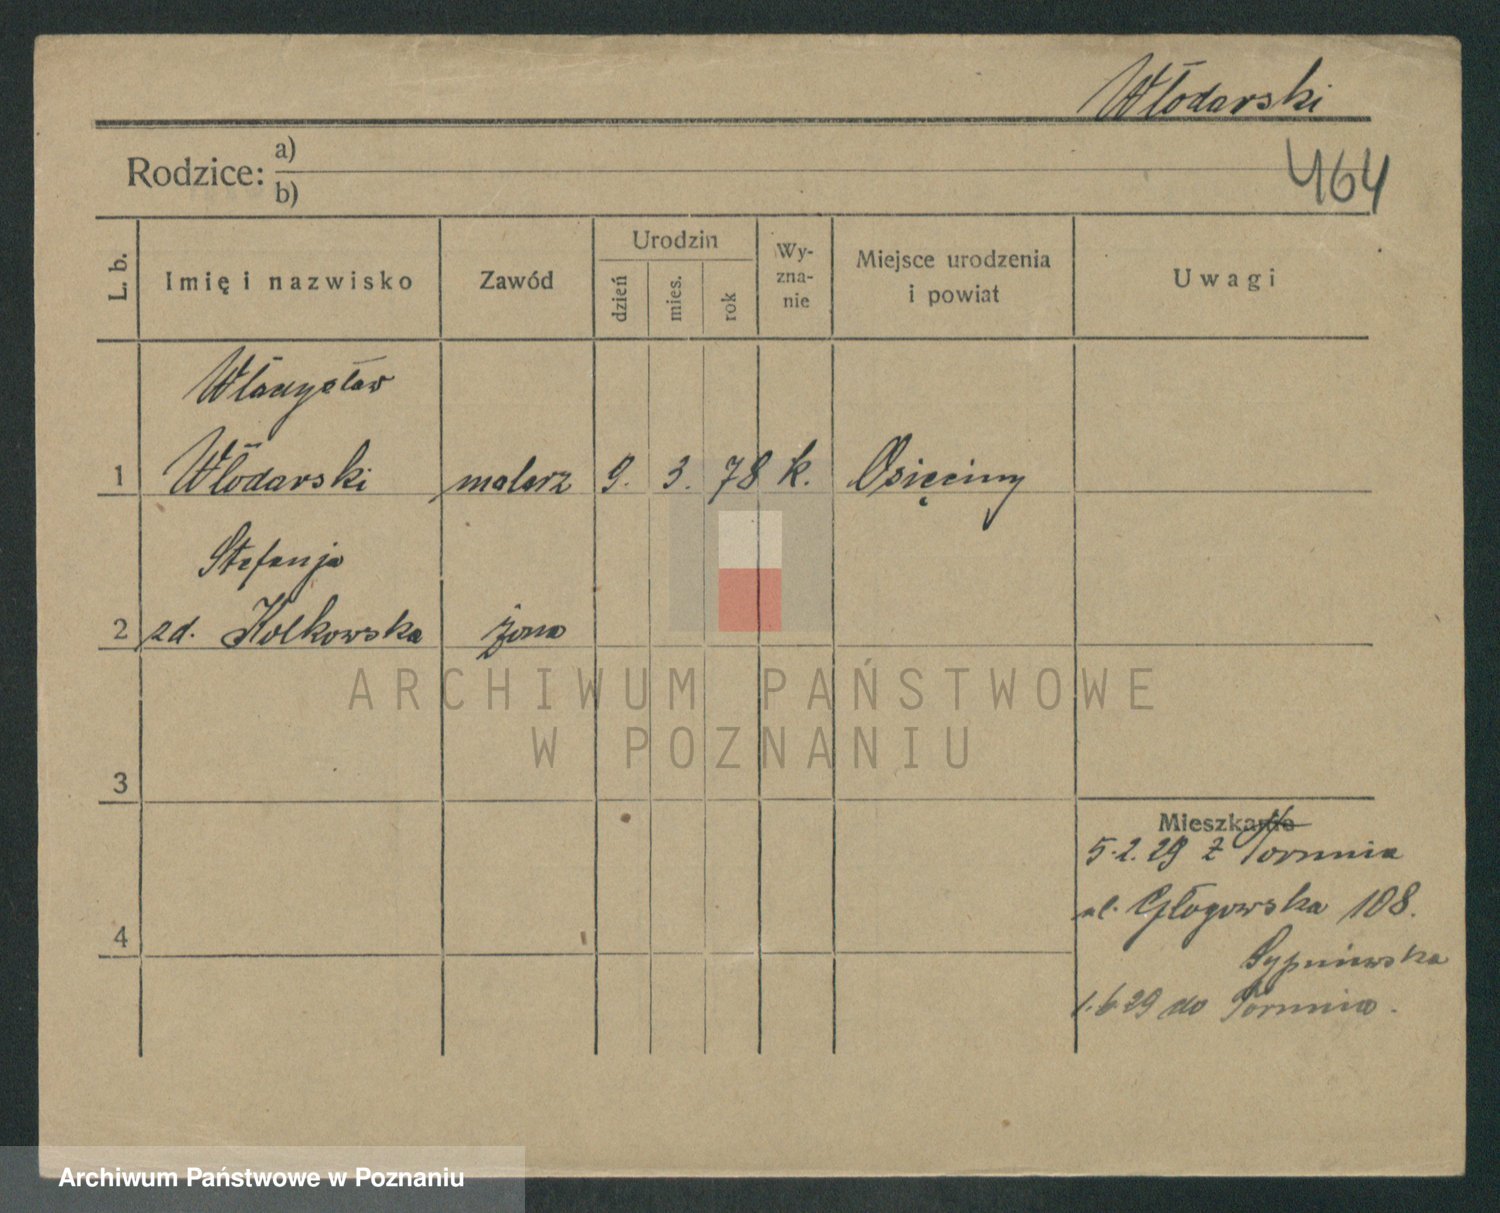 Włodarski
464
Rodzice: a)
b)
L. b.
Imię i nazwisko
Zawód
Urodzin
dzień
mies.
rok
Wy-
zna-
nie
Miejsce urodzenia
i powiat
Uwagi
Władysław
1 Włodarski malarz 9. 3. 78 k. Osięciny
Stefanja
2 zd. Kolkowska żona
ARCHIWUM PAŃSTWOWE
W POZNANIU
3
Mieszkanie
5.2.29 z Torunia
ul. Głogowska 108.
4
Sypniewska
1.6.29 do Torunia.
Archiwum Państwowe w Poznaniu